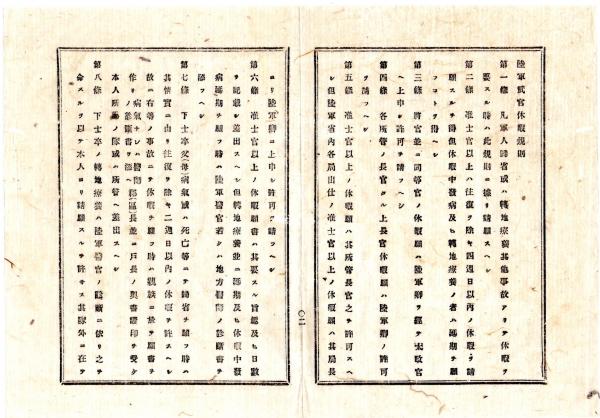 陸軍武官休暇規則
第一條 凡軍人歸省或ハ轉地療養其他事故アリテ休暇ヲ
要スル時ハ此規則ニ據リ請願スヘシ
第二條 准士官以上ハ往復ヲ除キ四週日以內ノ休暇ヲ請
願スルヲ得但休暇中發病及ヒ轉地療養ノ者ハ延期ヲ願
フコトヲ得ヘシ
第三條 將官並ニ同等官ノ休暇願ハ陸軍卿ヲ經テ太政官
ヘ上申シ許可ヲ請フヘシ
第四條 各所管ノ長官タル上長官休暇願ハ陸軍卿ノ許可
ヲ請フヘシ
第五條 准士官以上ノ休暇願ハ其所管長官之ヲ許可スヘ
シ但陸軍省內各局出仕ノ准士官以上ノ休暇願ハ其局長
ヨリ陸軍卿ニ上申シ許可ヲ請フヘシ
第六條 准士官以上ノ休暇願書ハ其要スル旨趣及ヒ日數
ヲ記載シ差出スヘシ但轉地療養並ニ延期及ヒ休暇中發
病延期ヲ願フ時ハ陸軍醫官若クハ地方醫師ノ診斷書ヲ
添フヘシ
第七條 下士卒父母病氣或ハ死亡等ニテ歸省ヲ願フ時ハ
其情實ニ由リ往復ヲ除キ二週日以內ノ休暇ヲ許スヘシ
故ニ右等ノ事故ニテ休暇ヲ願フ時ハ親族ニ於テ願書ヲ
作リ病氣ナレハ醫師ノ診斷書ヲ添ヘ區長並ニ戶長ノ奧書證印ヲ受ケ
本人所屬ノ隊或ハ所管ヘ差出スヘシ
第八條 下士卒ノ轉地療養ハ陸軍醫官ノ診斷ニ依リ之ヲ
命スルヲ以テ本人ヨリ請願スルヲ許サス其隊外ニ在テ